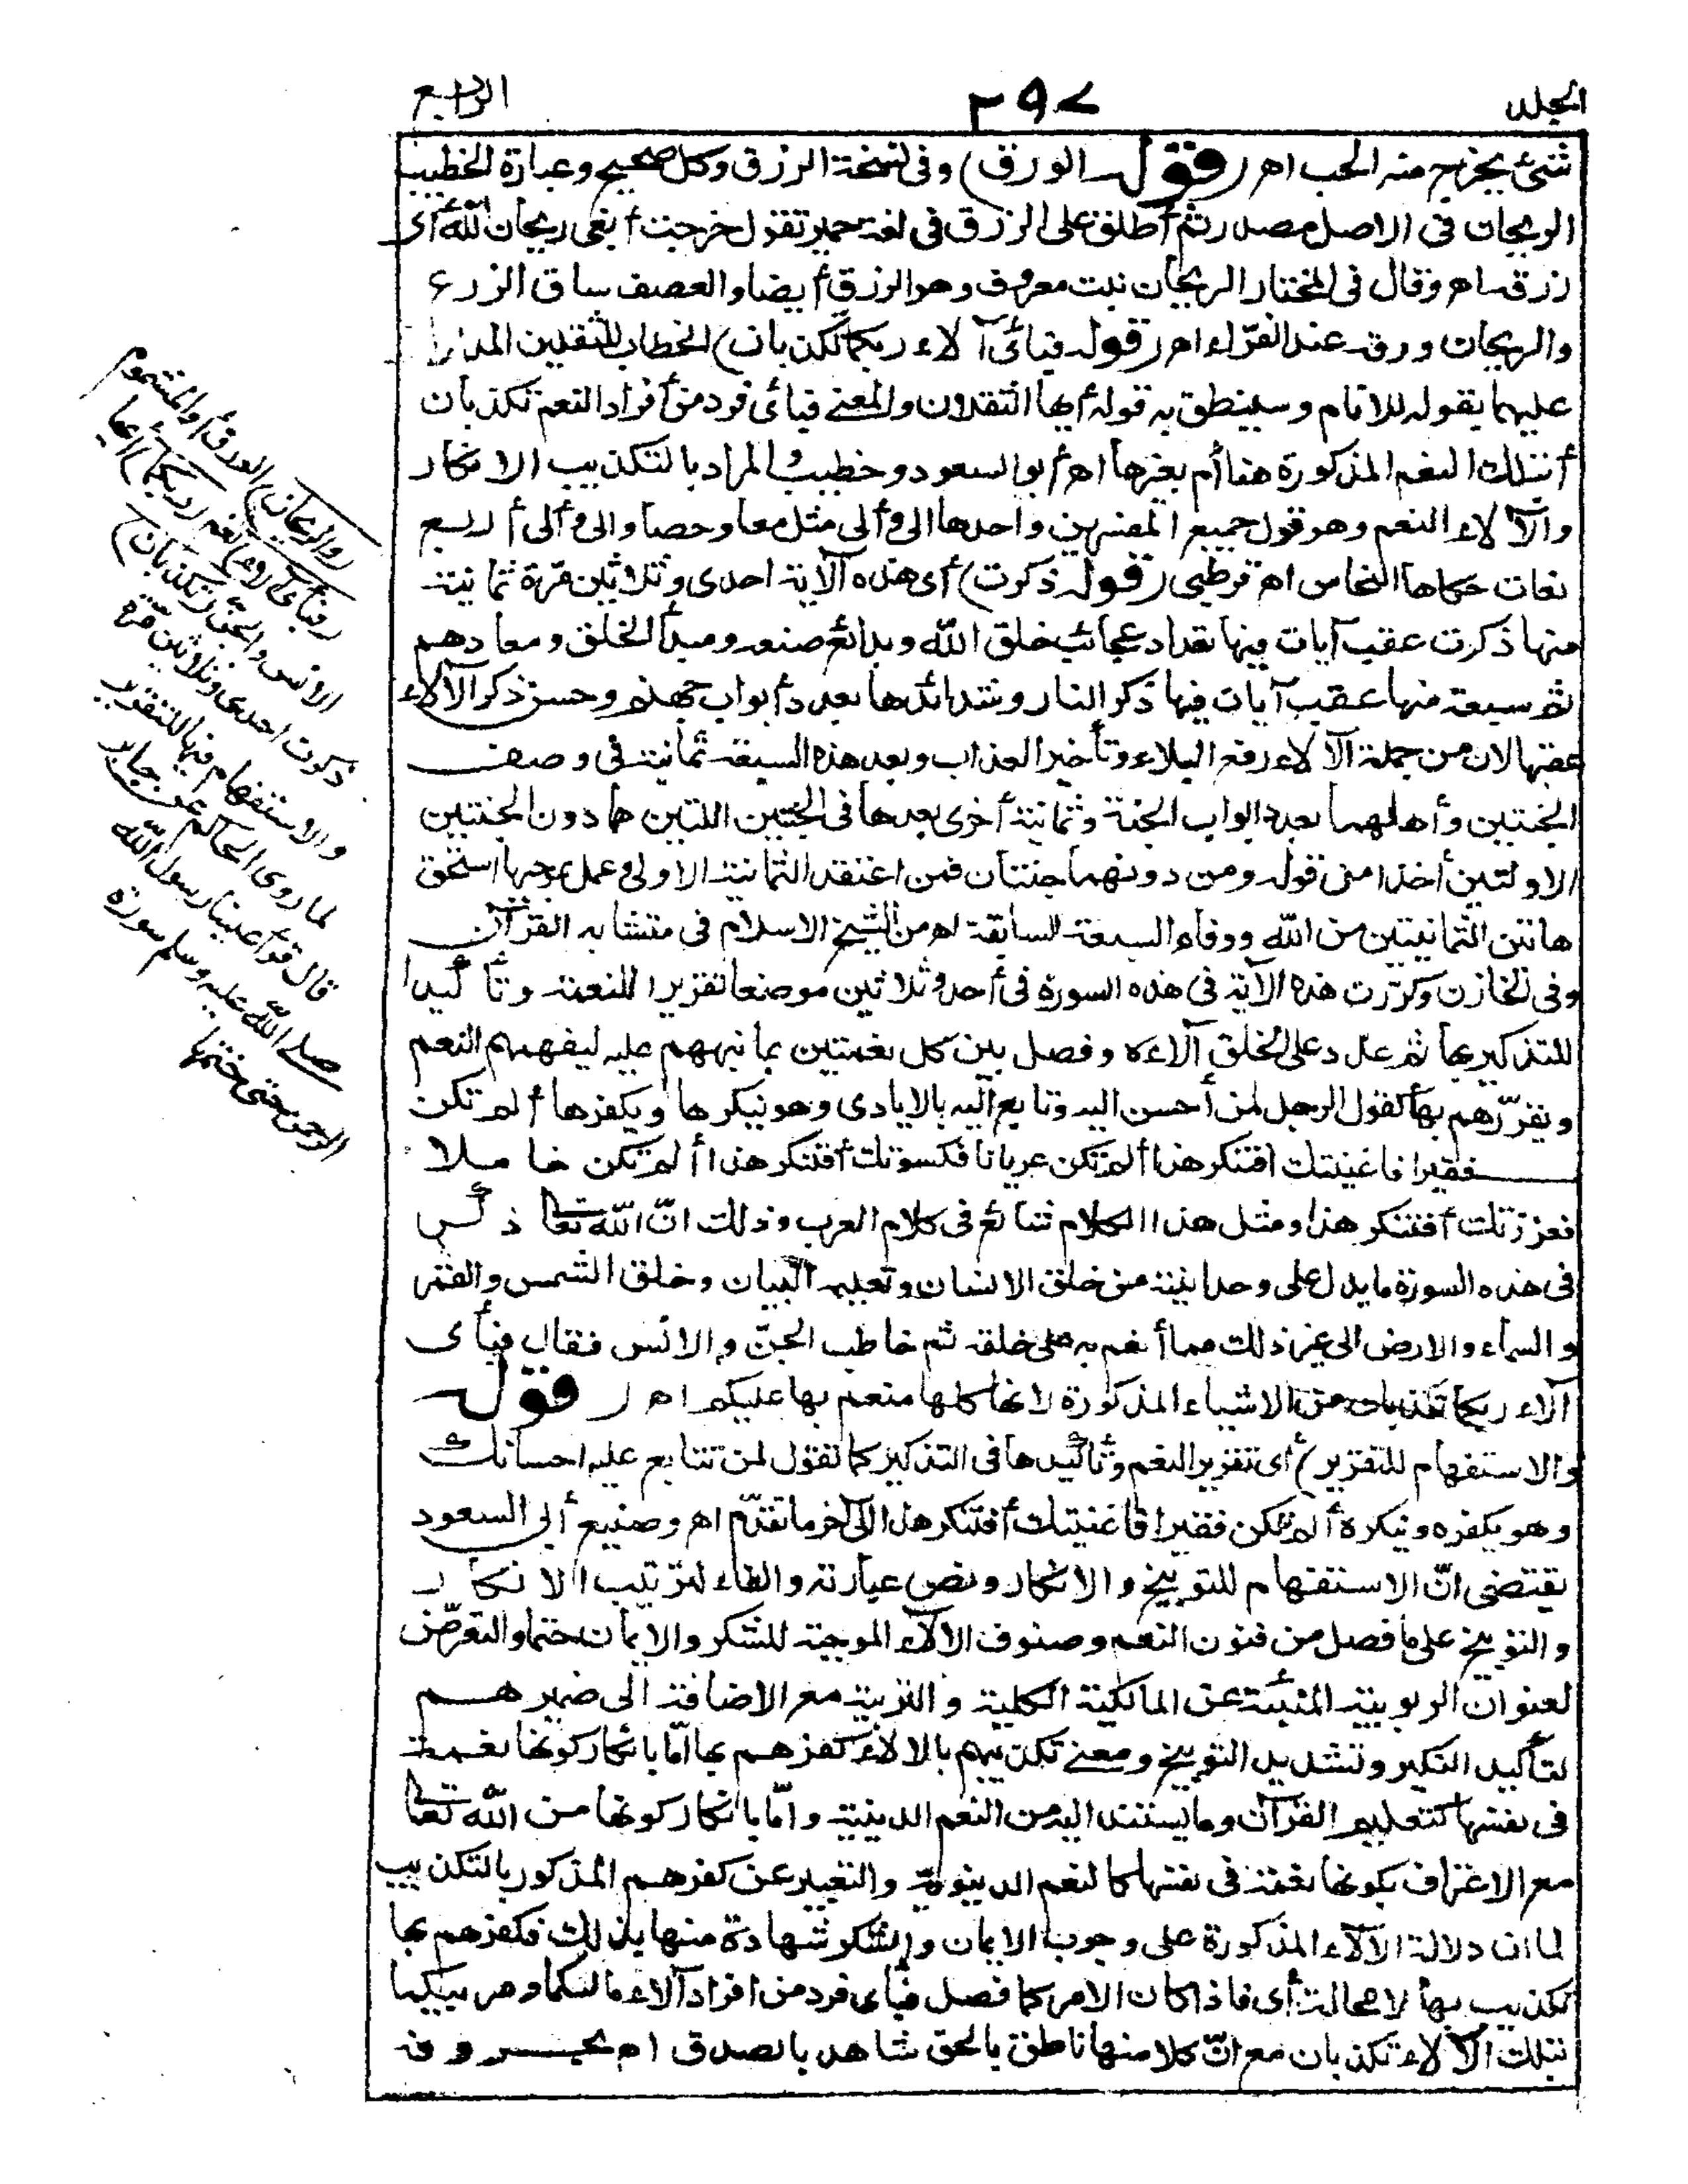 المجلد
٢٩٧
الرابع
شئ يخرج منه الحب اهـ (قوله الورق) وفى نسخة الرزق وكل صحيح وعبارة الخطيب
الريحان فى الاصل مصدر ثم أطلق على الرزق فى لغة حمير تقول خرجت أبغى ريحان الله أى
رزقه اهـ وقال فى المختار الريحان نبت معروف وهو الرزق أيضا والعصف ساق الزرع
والريحان ورقه عند الفرّاء اهـ (قوله فبأىّ آلاء ربكما تكذبان) الخطاب للثقلين المدلول
عليهما بقوله للانام وسينطق به قوله أيها الثقلان والمعنى فبأى فرد من أفراد النعم تكذبان
أبتلك النعم المذكورة هنا أم بغيرها اهـ أبو السعود وخطيب والمراد بالتكذيب الانكار
والآلاء النعم وهو قول جميع المفسرين واحدها الى وألى مثل معا وحصا والى وألى أربع
لغات حكاها النحاس اهـ قرطبى (قوله ذكرت) أى هذه الآية احدى وثلاثين مرّة ثمانية
منها ذكرت عقب آيات فيها تعداد عجائب خلق الله وبدائع صنعه ومبدأ الخلق ومعادهم
ثم سبعة منها عقيب آيات فيها ذكر النار وشدائدها بعدد أبواب جهنم وحسن ذكر الآلاء
عقبها لان من جملة الآلاء رفع البلاء وتأخير العذاب وبعد هذه السبعة ثمانية فى وصف
الجنتين وأهلهما بعدد ابواب الجنة وثمانية أخرى بعدها فى الجنتين اللتين هما دون الجنتين
الاولتين أخذا من قوله ومن دونهما جنتان فمن اعتقد الثمانية الاولى وعمل بموجبها استحق
هاتين الثمانيتين من الله ووقاه السبعة السابقة اهـ من الشيخ الاسلام فى متشابه القرآن
وفى الخازن وكرّرت هذه الآية فى هذه السورة فى أحد وثلاثين موضعا تقريرا للنعمة وتأكيدا
للتذكير بها ثم عدد على الخلق آلاءه وفصل بين كل نعمتين بما نبههم عليه ليفهمهم النعم
ويقرّرهم بها كقول الرجل لمن أحسن اليه وتابع اليه بالايادى وهو ينكرها ويكفرها ألم تكن
فقيرا فاغنيتك افتنكر هذا ألم تكن عريانا فكسوتك أفتنكر هذا ألم تكن خاملا
فعززتك أفتنكر هذا ومثل هذا الكلام شائع فى كلام العرب وذلك انّ الله تعا ذكر
فى هذه السورة ما يدل على وحدانيته من خلق الانسان وتعليمه البيان وخلق الشمس والقمر
والسماء والارض الى غير ذلك مما أنعم به على خلقه ثم خاطب الجنّ والانس فقال فبأى
آلاء ربكما تكذبان من الاشياء المذكورة لانها كلها منعم بها عليكم اهـ (قوله
والاستفهام للتقرير) أى تقرير النعم وتأكيدها فى التذكير كما تقول لمن تتابع عليه احسانك
وهو يكفره وينكره ألم تكن فقيرا فاغنيتك أفتنكر هذا الى آخر ما تقدّم اهـ وصنيع أبى السعود
يقتضى انّ الاستفهام للتوبيخ والانكار ونص عبارته والفاء لترتيب الانكار
والتوبيخ على ما فصل من فنون النعم وصنوف الآلاء الموجبة للشكر والايمان حتما والتعرّض
لعنوان الربوبية المنبئة عن المالكية الكلية والتربية مع الاضافة الى ضميرهم
لتأكيد النكير وتشديد التوبيخ ومعنى تكذيبهم بالالاء كفرهم بها امّا بانكار كونها نعمة
فى نفسها كتعليم القرآن وما يستند اليه من النعم الدينية وامّا بانكار كونها من الله تعا
مع الاعتراف بكونها نعمة فى نفسها كالنعم الدنيوية والتعبير عن كفرهم المذكور بالتكذيب
لما ان دلالة الآلاء المذكورة على وجوب الايمان والشكر شهادة منها بذلك فكفرهم بها
تكذيب بها لا محالة أى فاذا كان الامر كما فصل فبأى فرد من افراد آلاء مالككما ومربيكما
بتلك الآلاء تكذبان مع انّ كلا منها ناطق بالحق شاهد بالصدق اهـ بحروفه
(والريحان) الورق أو المشموم
(فبأىّ آلاء) نعم (ربكما) أيها
الانس والجنّ (تكذبان)
ذكرت احدى وثلاثين مرّة
والاستفهام فيها للتقرير
لما روى الحاكم عن جابر
قال قرأ علينا رسول الله
صلى الله عليه وسلم سورة
الرحمن حتى ختمها